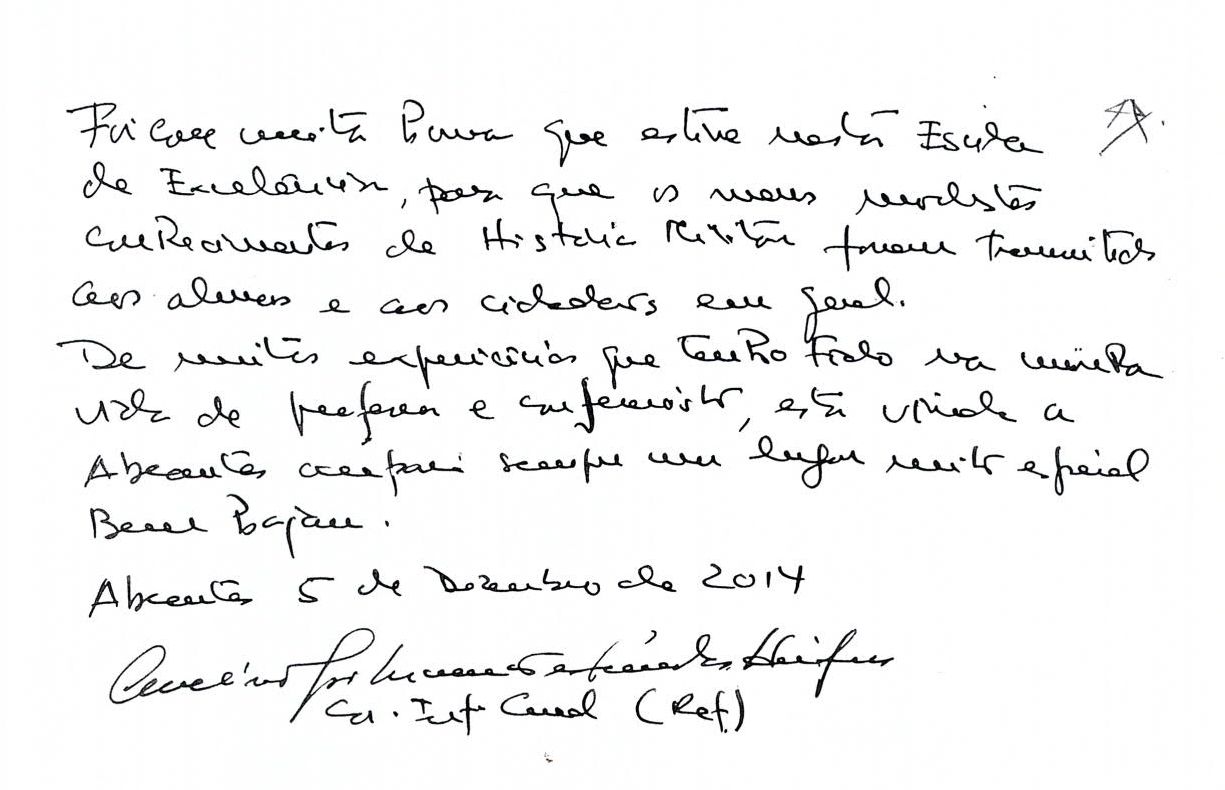 Foi com muita honra que estive nesta Escola
de Excelência, para que os meus modestos
conhecimentos de História Militar fossem transmitidos
aos alunos e aos cidadãos em geral.
De muitas experiências que tenho tido na minha
vida de professor e conferencista, esta vinda a
Abrantes ocupará sempre um lugar muito especial
Bem Hajam.
Abrantes 5 de Dezembro de 2014
(Ref.)